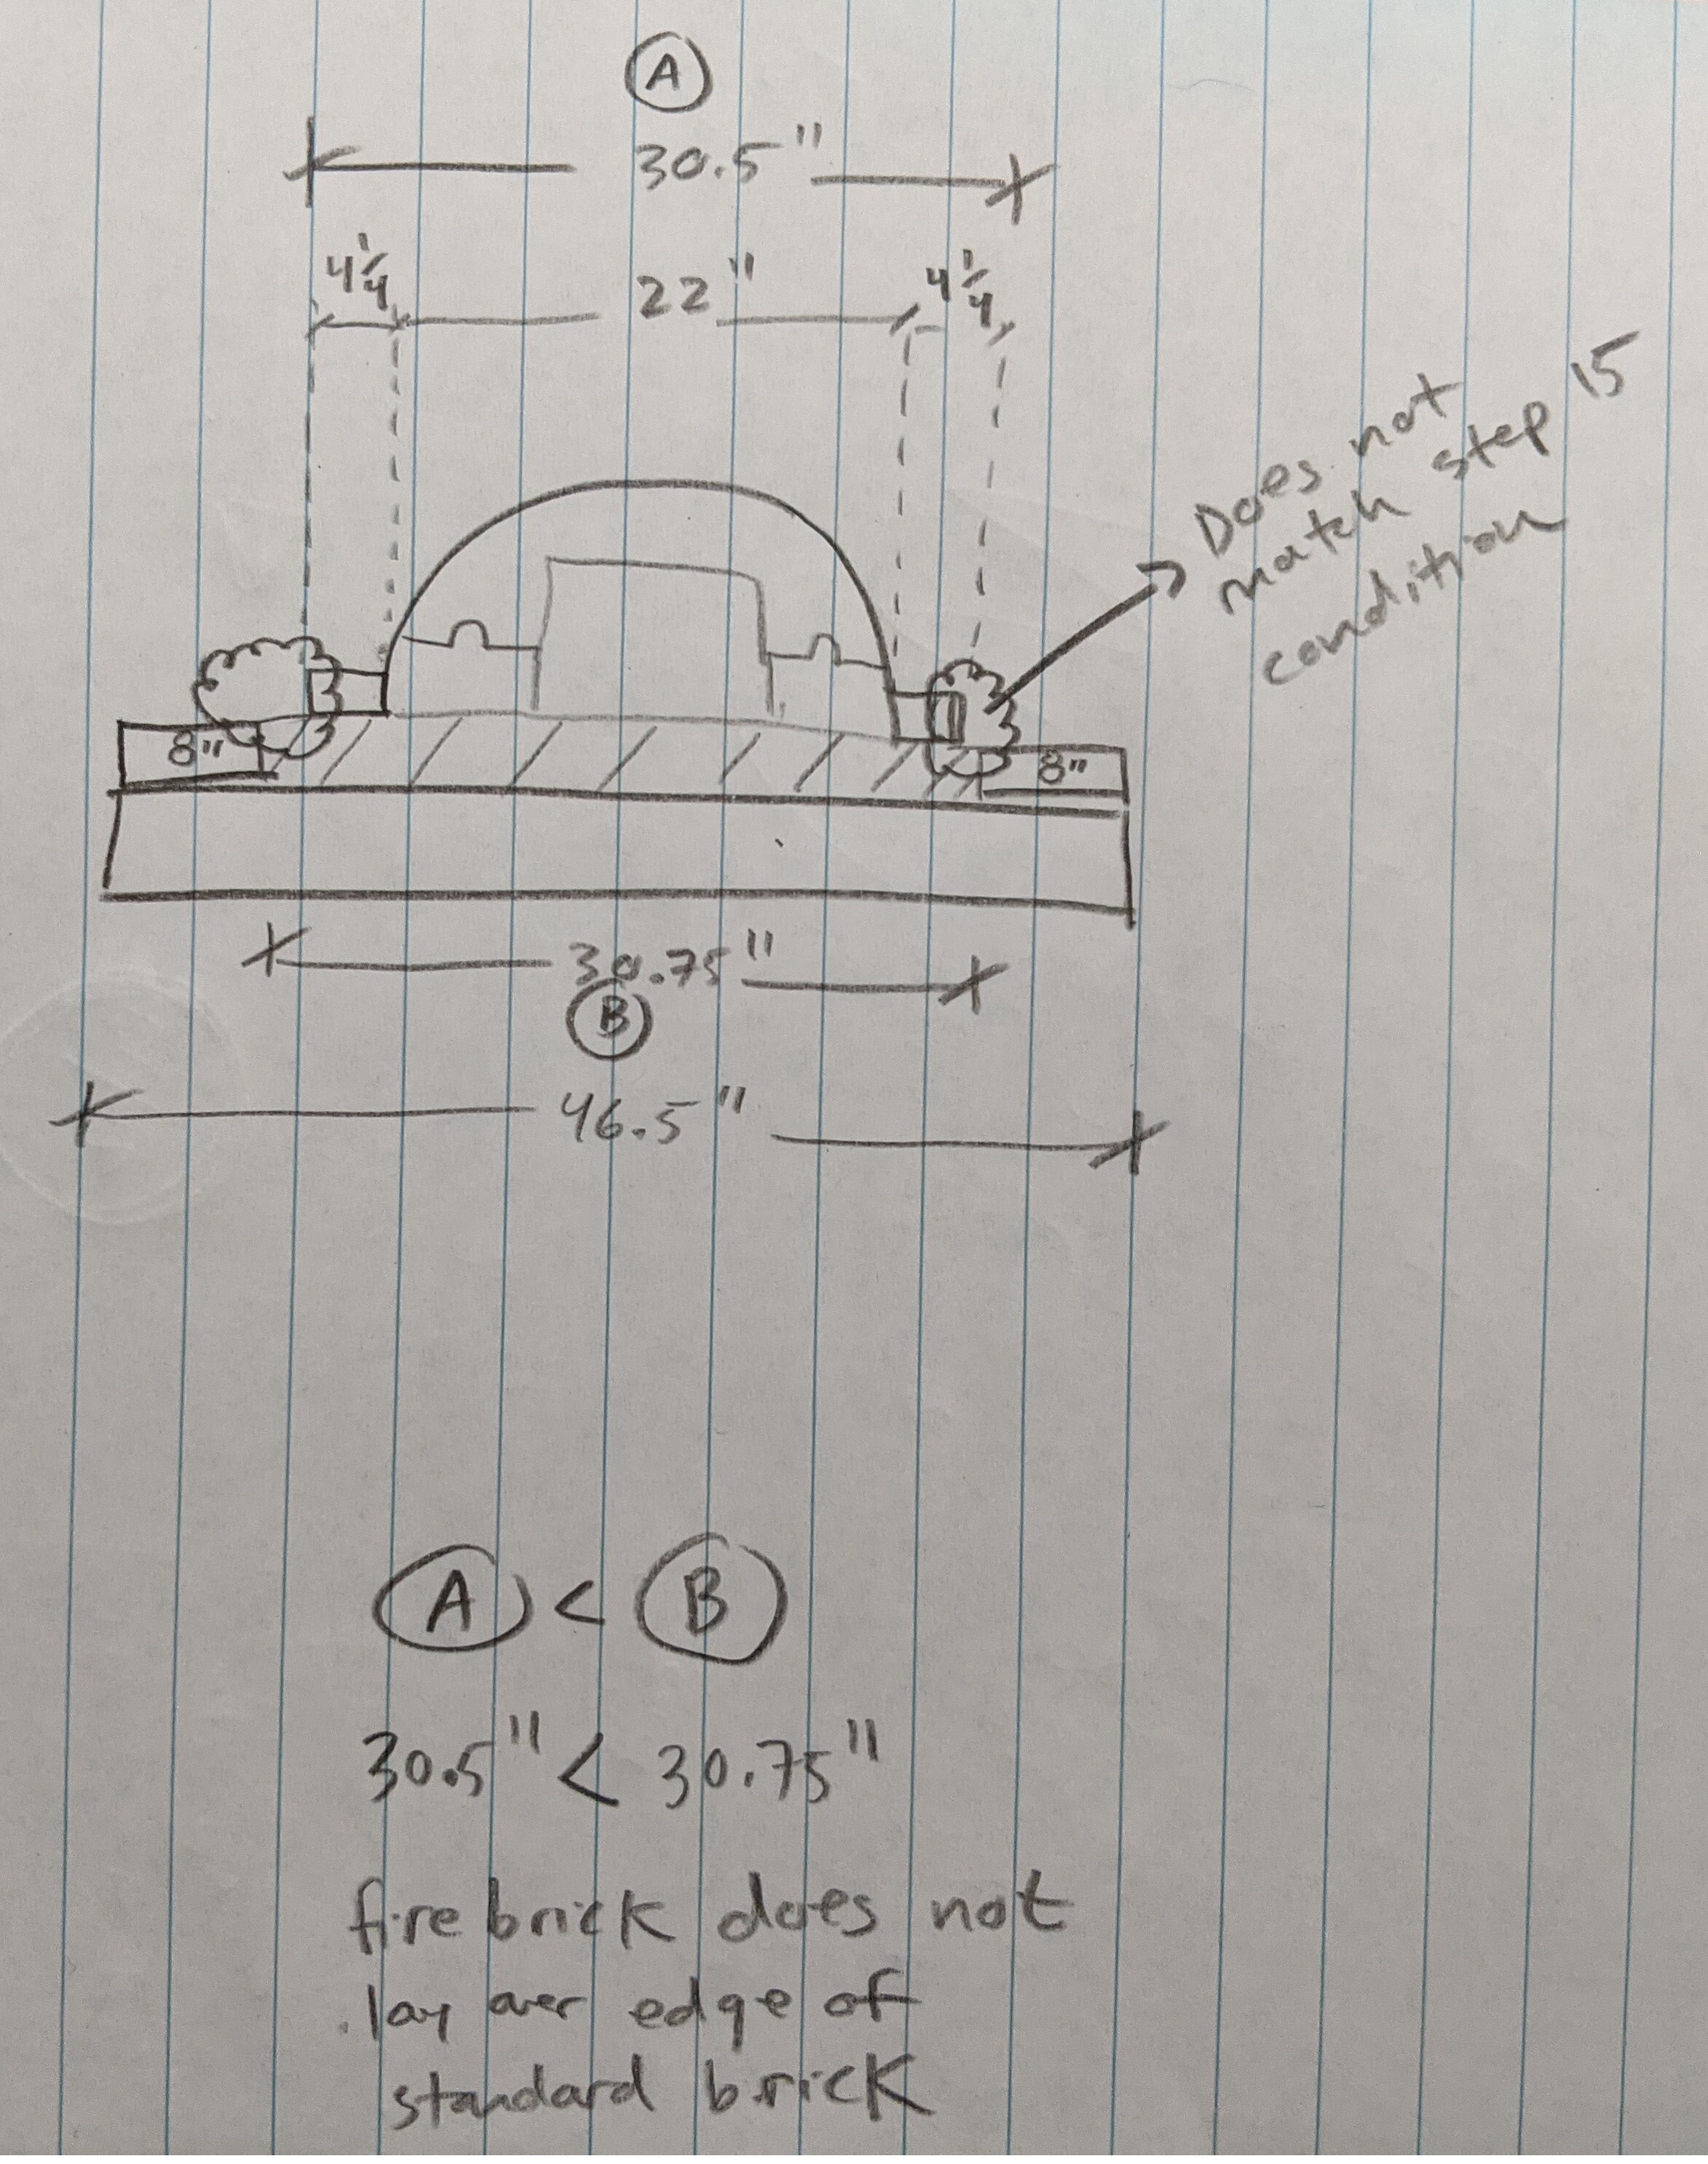 A
30.5"
4 1/4
22"
4 1/4
Does not
match step 15
condition
8"
8"
30.75"
B
46.5"
A < B
30.5" < 30.75"
fire brick does not
lay over edge of
standard brick